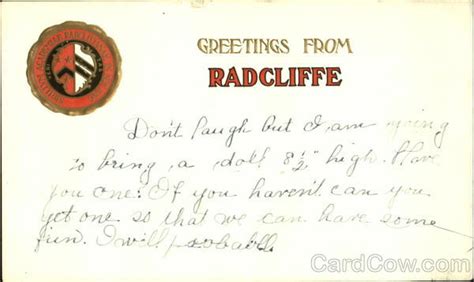 GREETINGS FROM
RADCLIFFE
Don't laugh but I am going
to bring a doll 8½" high. Have
you one? If you haven't can you
get one so that we can have some
fun. I will probable
CardCow.com